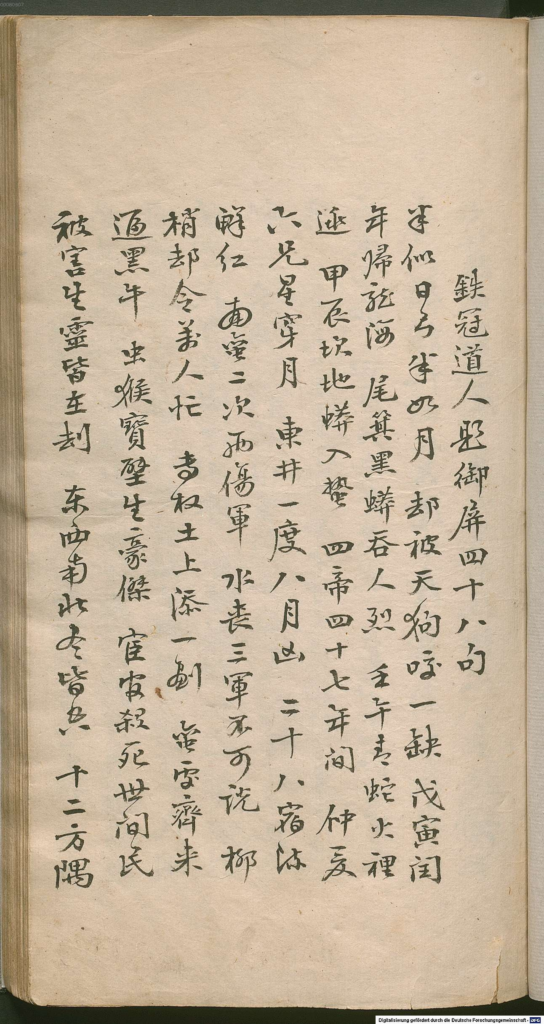 鉄冠道人題御屏四十八句
半似日兮半如月 却被天狗咬一缺 戊寅閏
年帰龍海 尾箕黑蟒吞人烈 壬午青蛇火裡
逃 甲辰坎地蟒入蟄 四帝四十七年間 仲夏
六兄星穿月 東井一度八月凶 二十八宿
鮮紅 南蛮二次兩傷軍 水喪三軍不可説 柳
梢却令萬人忙 土上添一 蛮雯齊来
逼黑牛 虫猴寶壁生豪傑 宦官殺死世间民
被害生靈皆在刦 东西南北尽皆兵 十二方隅
Digitalisierung gefördert durch die Deutsche Forschungsgemeinschaft - DFG